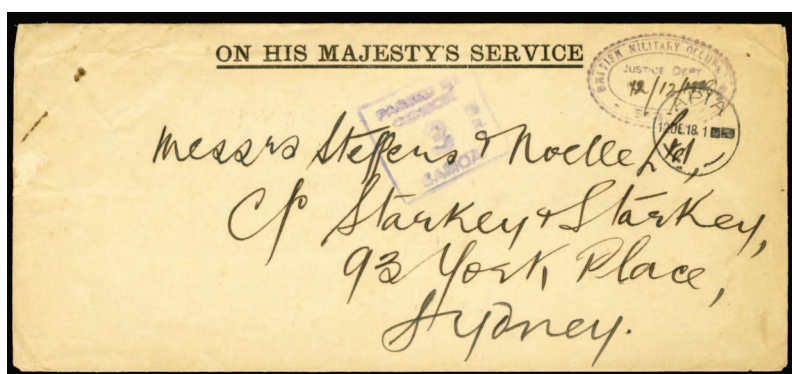 ON HIS MAJESTY'S SERVICE
BRITISH MILITARY OCCUPA
JUSTICE DEPT
12/12/
APIA
12DE.18.1
PASSED BY
CENSOR
3
SAMOA
Messrs Steffens & Noelle Ltd,
C/o Starkey & Starkey,
93 York Place,
Sydney.